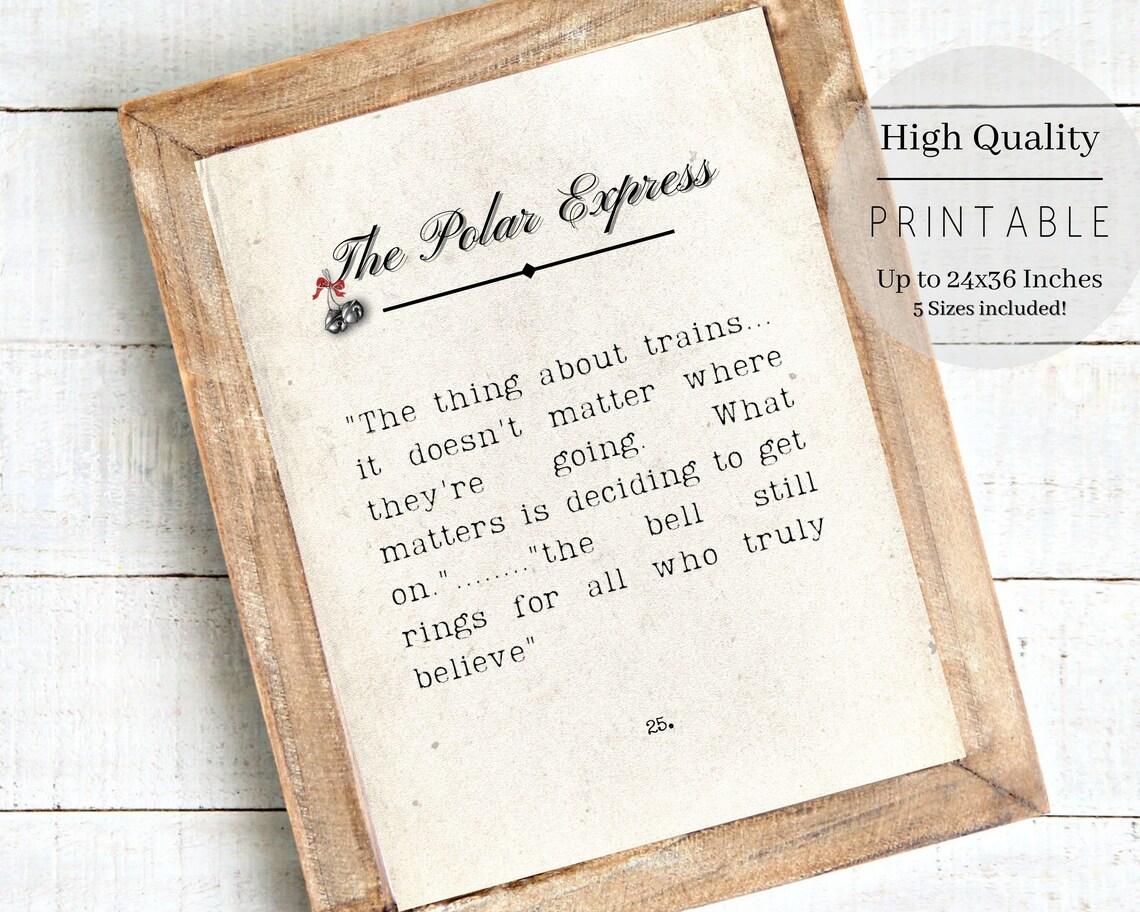 The Polar Express
"The thing about trains...
it doesn't matter where
they're going. What
matters is deciding to get
on.".........."the bell still
rings for all who truly
believe"
25.
High Quality
PRINTABLE
Up to 24x36 Inches
5 Sizes included!